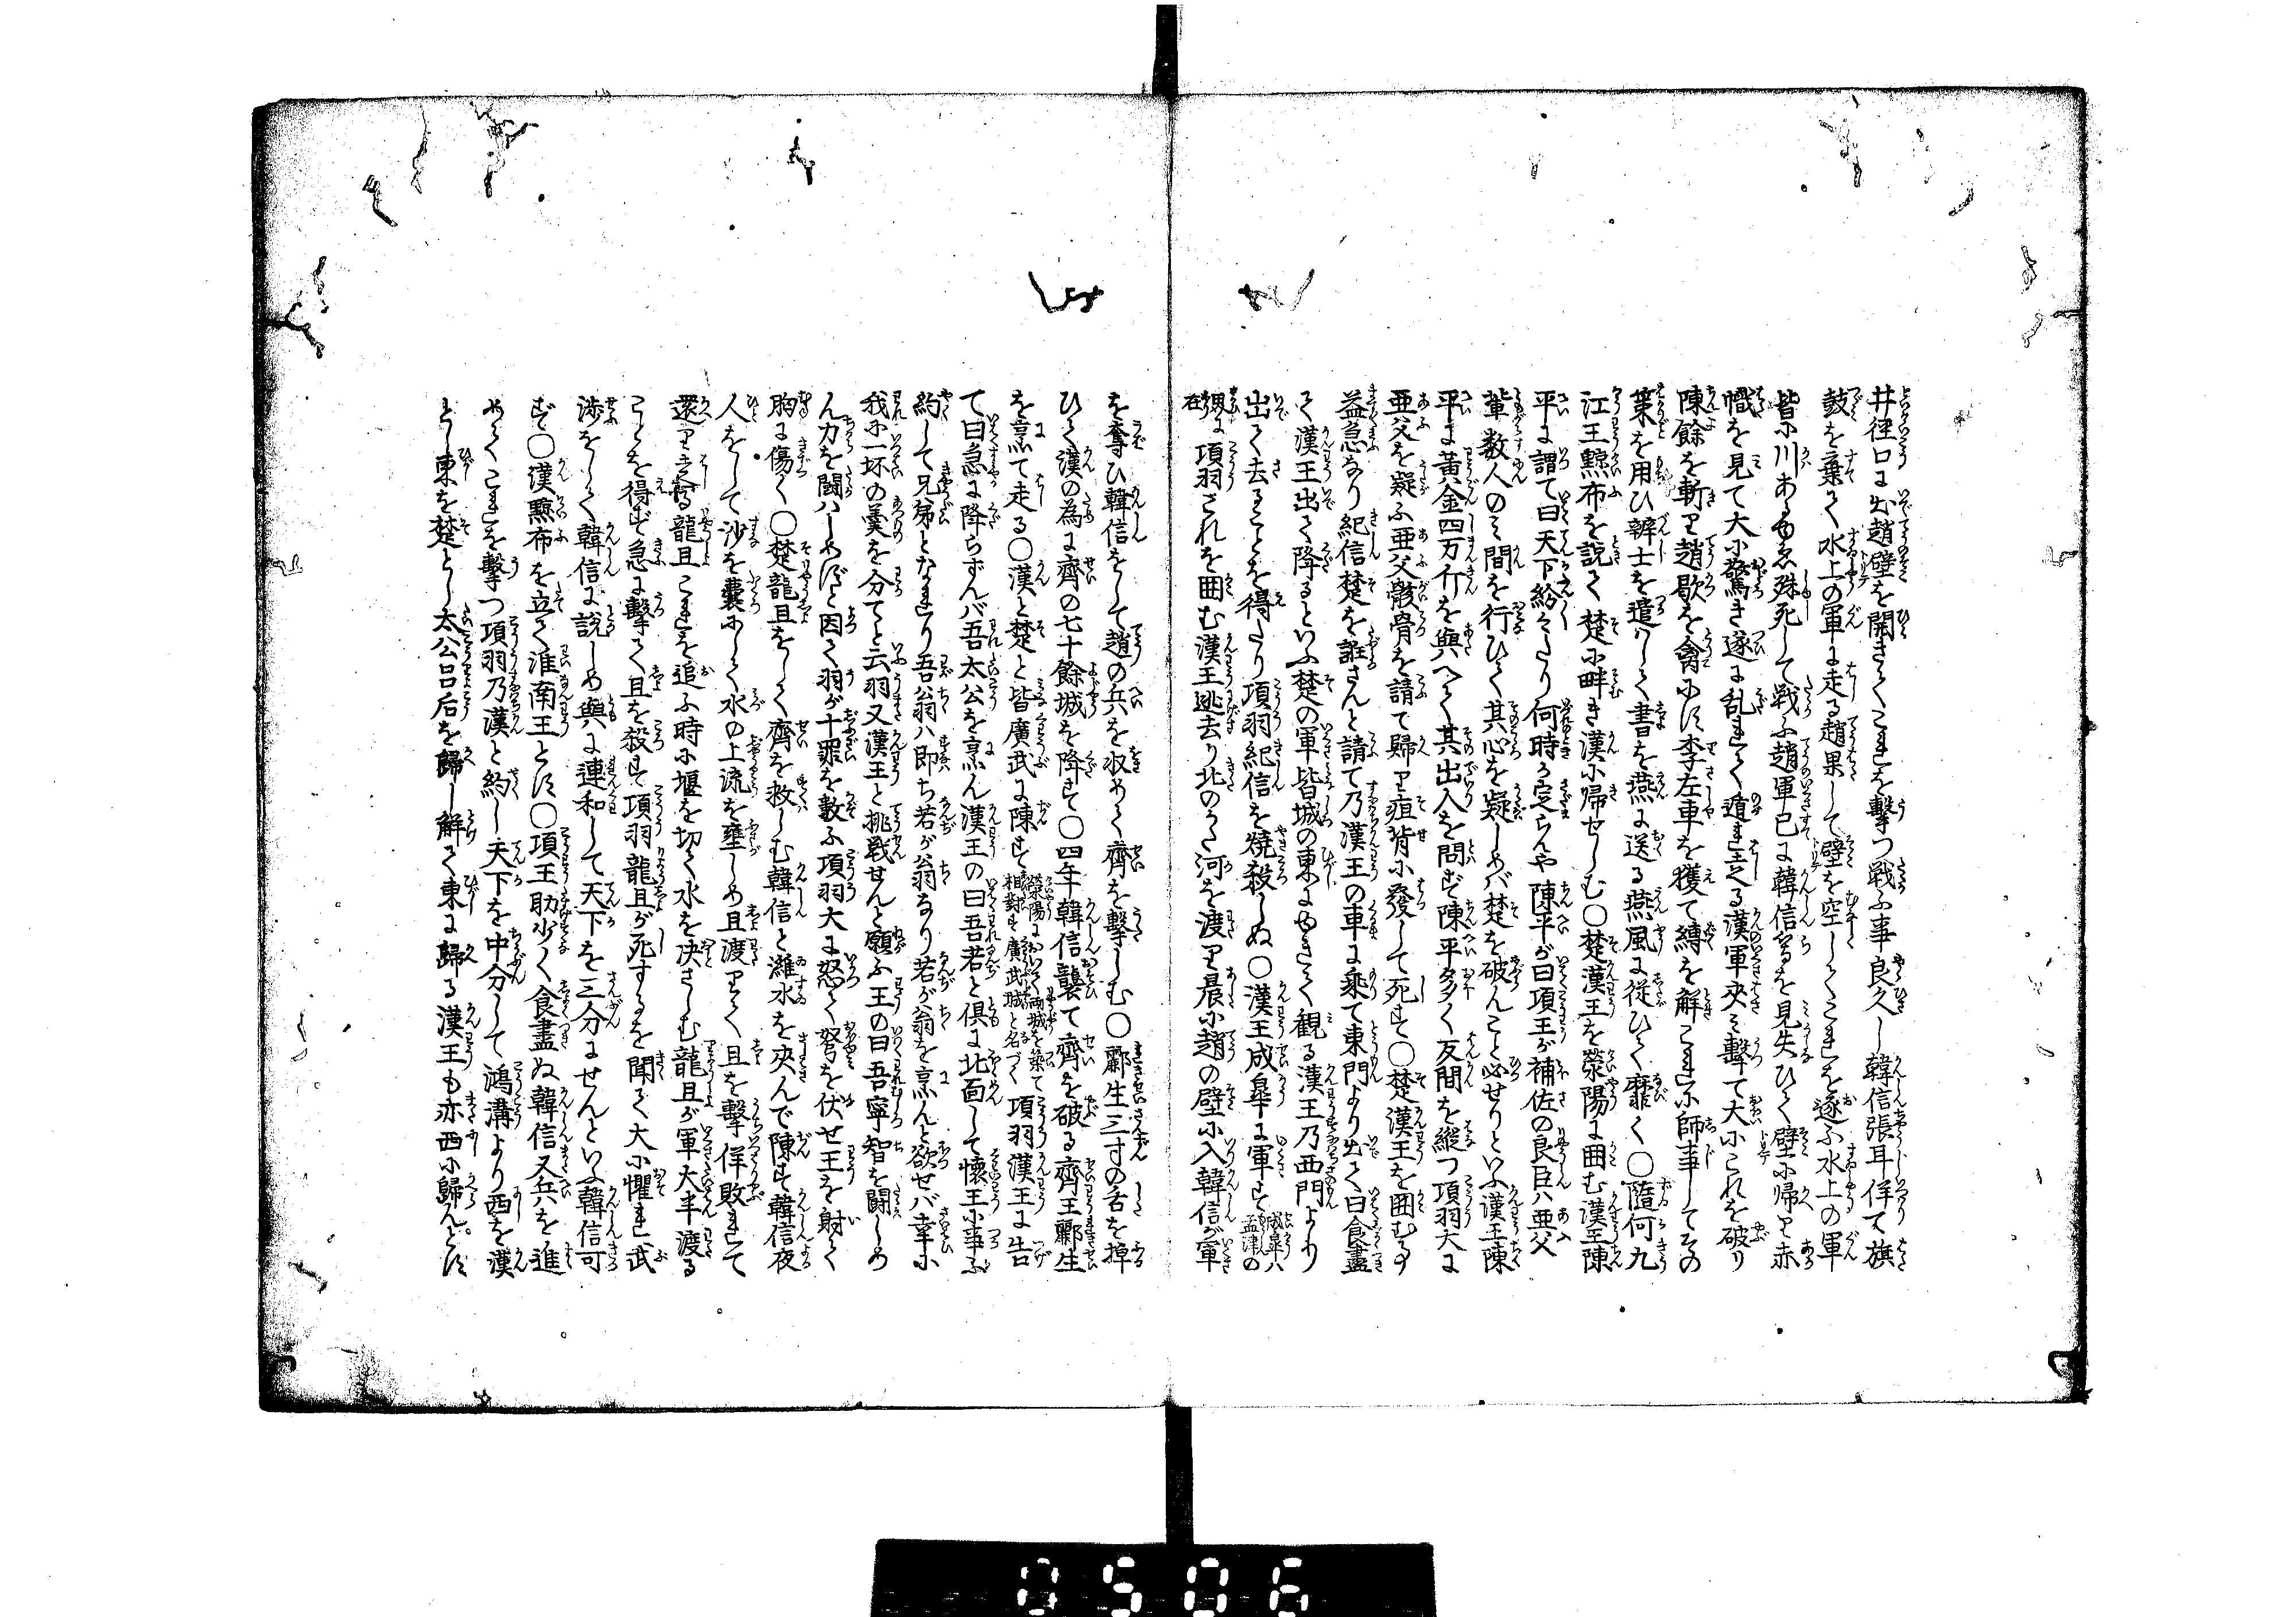 井径口に出趙壁を開きてこれを撃つ戦ふ事良久し韓信張耳佯て旗
鼓を棄て水上の軍に走る趙果して壁を空しくこれを逐ふ水上の軍
皆川あるゆゑ殊死して戦ふ趙軍已に韓信等を見失ひて壁に帰り赤
幟を見て大に驚き遂に乱れて遁れ走る漢軍夾み撃て大にこれを破り
陳餘を斬り趙歇を禽にす李左車を獲て縛を解これに師事してその
策を用ひ辯士を遣はして書を燕に送る燕風に従ひて靡く〇隨何九
江王黥布を説て楚に畔き漢に帰せしむ〇楚漢王を滎陽に囲む漢王陳
平に謂て曰天下紛々たり何時か定らんや陳平が曰項王が補佐の良臣ハ亜父
輩数人のミ間を行ひて其心を疑しめバ楚を破んこと必せりといふ漢王陳
平に黄金四万斤を與へて其出入を問ず陳平多く反間を縦つ項羽大に
亜父を疑ふ亜父骸骨を請て歸り疽背に發して死す〇楚漢王を囲む事
益急なり紀信楚を誑さんと請て乃漢王の車に乗て東門より出て曰食盡
て漢王出て降るといふ楚の軍皆城の東にゆきて観る漢王乃西門より
出て去ることを得たり項羽紀信を焼殺しぬ〇漢王成皐に軍す成皐ハ孟津の
在項羽これを囲む漢王逃去り北のかた河を渡り晨に趙の壁に入韓信が軍
を奪ひ韓信をして趙の兵を収めて齊を撃しむ〇酈生三寸の舌を掉
ひて漢の為に齊の七十餘城を降す〇四年韓信襲て齊を破る齊王酈生
を烹て走る〇漢と楚と皆廣武に陳す滎陽において両城を築て相對す廣武城と名づく項羽漢王に告
て曰急に降らずんバ吾太公を烹ん漢王の曰吾若と倶に北面して懐王に事ふ
約して兄弟となれり吾翁ハ即ち若が翁なり若が翁を烹んと欲せバ幸に
我に一坏の羹を分てと云羽又漢王と挑戦せんと願ふ王の曰吾寧智を闘しめ
ん力を闘ハしめじと因て羽が十罪を數ふ項羽大に怒て弩を伏せ王を射て
胸に傷く〇楚龍且をして齊を救しむ韓信と濰水を夾んで陳す韓信夜
人をして沙を嚢にして水の上流を壅しめ且渡りて且を撃佯敗れて
還り走る龍且これを追ふ時に堰を切て水を决さしむ龍且が軍大半渡る
ことを得ず急に撃て且を殺す項羽龍且が死するを聞て大に懼れ武
渉をして韓信に説しめ與に連和して天下を三分にせんといふ韓信可
ず〇漢黥布を立て淮南王とす〇項王助少く食盡ぬ韓信又兵を進
めてこれを撃つ項羽乃漢と約し天下を中分して鴻溝より西を漢
とし東を楚とし太公呂后を歸し解て東に歸る漢王も亦西に歸んとす